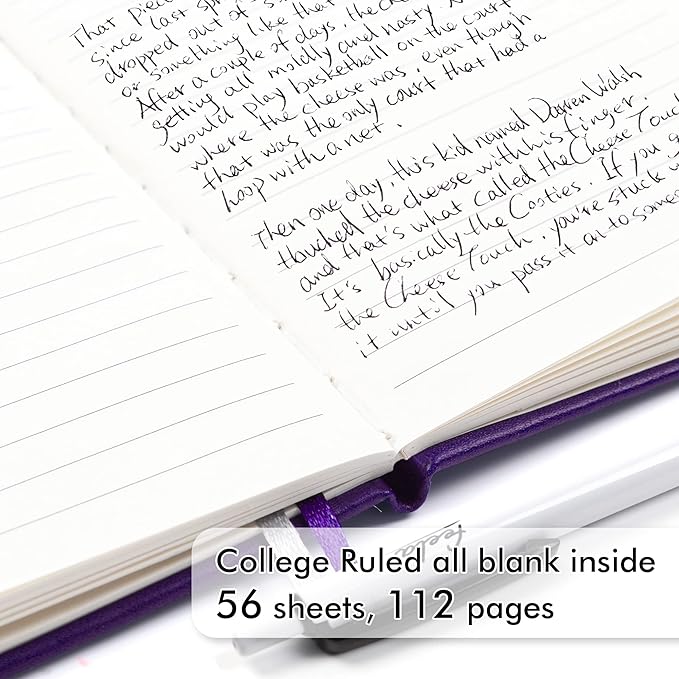 That piece
Since last sp
dropped out of s
or something like that
After a couple of days, the Che
getting all moldly and nasty. N
would play basketball on the court
where the cheese was, even though
that was the only court that had a
hoop with a net.
Then one day, this kid named Darren Walsh
touched the cheese with his finger.
and that's what called the Cheese Touch
It's basically the Cooties. If you g
the Cheese Touch, you're stuck w
it until you pass it on to someo
feela
College Ruled all blank inside
56 sheets, 112 pages